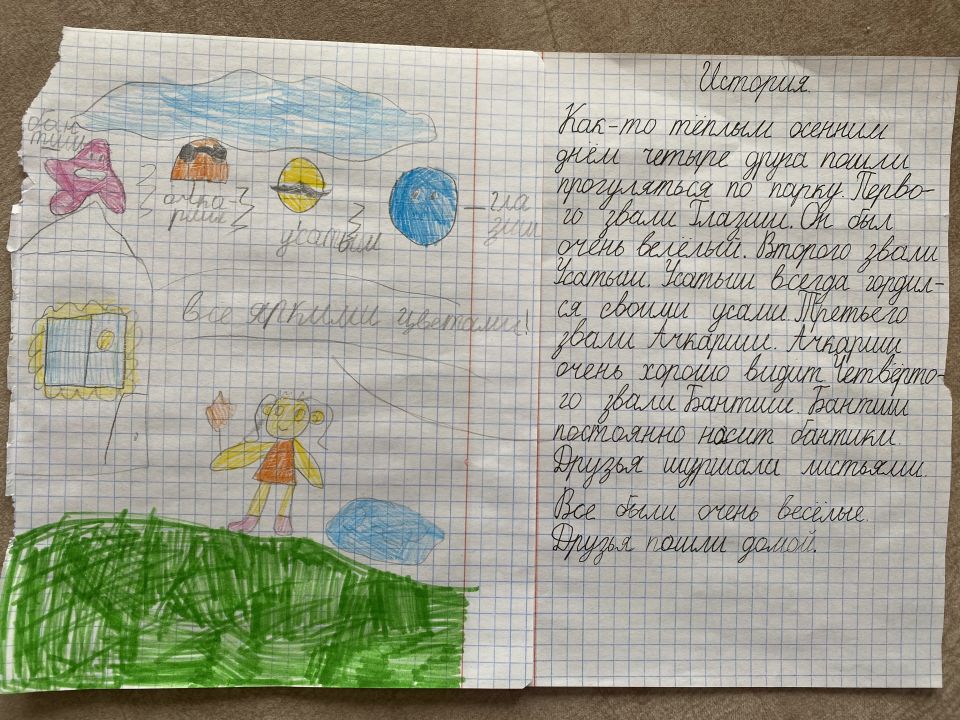 бан
тиш
очка-
риш
усатыш
гла
зиш
все яркими цветами!
История.
Как-то тёплым осенним
днём четыре друга пошли
прогуляться по парку. Перво-
го звали Глазиш. Он был
очень велёлый. Второго звали
Усатыш. Усатыш всегда гордил-
ся своими усами. Третьего
звали Ачкариш. Ачкариш
очень хорошо видит. Четвёрто-
го звали Бантиш. Бантиш
постоянно носит бантики.
Друзья шуршала листьями.
Все были очень весёлые.
Друзья пошли домой.